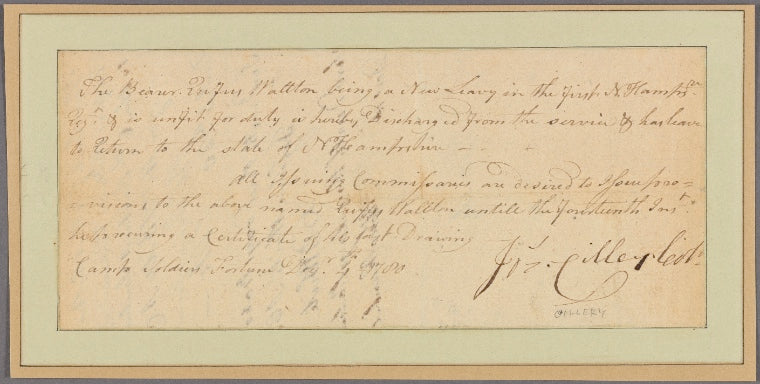 The Bearer Rufus Wallton being a New Leavy in the first N. Hampsre.
Regt. & is unfit for duty is hereby Discharged from the service & has leave
to Return to the state of N Hampshire — —
All Issuing Commissaries are desired to Issue pro=
visions to the above named Rufus Wallton untill the fourteenth Inst.
he procuring a Certificate of his last Drawing
Camp Soldiers Fortune Decr. 4 1780
Jos. Cilley Colo.